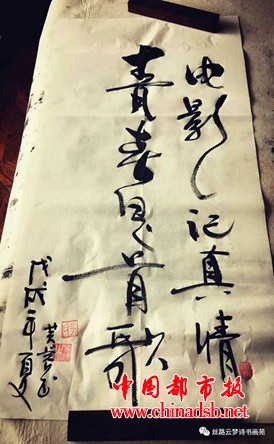 电影记真情
青春是首歌
戊戌年夏
中国都市报
www.chinadsb.net
丝路云梦诗书画苑